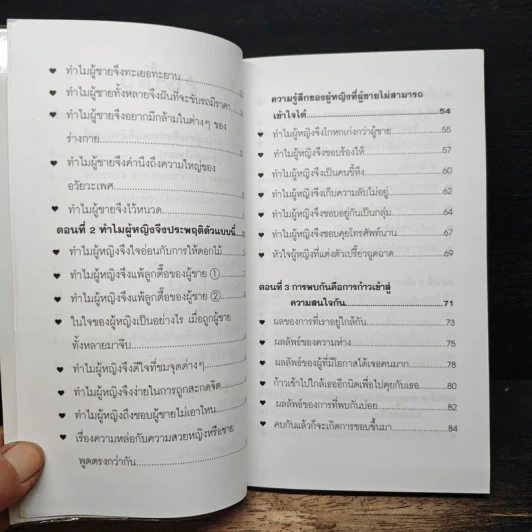 ♥ ทำไมผู้ชายจึงทะเยอทะยาน
♥ ทำไมผู้ชายทั้งหลายจึงฝันที่จะขับรถมีราคา
♥ ทำไมผู้ชายจึงอยากมีกล้ามในต่างๆ ของ
ร่างกาย
♥ ทำไมผู้ชายจึงคำนึงถึงความใหญ่ของ
อวัยวะเพศ
♥ ทำไมผู้ชายจึงไว้หนวด
ตอนที่ 2 ทำไมผู้หญิงจึงประพฤติตัวแบบนี้
♥ ทำไมผู้หญิงจึงใจอ่อนกับการให้ดอกไม้
♥ ทำไมผู้หญิงจึงแพ้ลูกตื๊อของผู้ชาย ①
♥ ทำไมผู้หญิงจึงแพ้ลูกตื๊อของผู้ชาย ②
♥ ในใจของผู้หญิงเป็นอย่างไร เมื่อถูกผู้ชาย
ทั้งหลายมาจีบ
♥ ทำไมผู้หญิงจึงดีใจที่ชมจุดต่างๆ
♥ ทำไมผู้หญิงจึงง่ายในการถูกสะกดจิต
♥ ทำไมผู้หญิงถึงชอบผู้ชายไม่เอาไหน
♥ เรื่องความหล่อกับความสวยหญิงหรือชาย
พูดตรงกว่ากัน
ความรู้สึกของผู้หญิงที่ผู้ชายไม่สามารถ
เข้าใจได้ 54
♥ ทำไมผู้หญิงจึงโกหกเก่งกว่าผู้ชาย 55
♥ ทำไมผู้หญิงจึงชอบร้องไห้ 57
♥ ทำไมผู้หญิงจึงเป็นคนขี้หึง 60
♥ ทำไมผู้หญิงจึงเก็บความลับไม่อยู่ 62
♥ ทำไมผู้หญิงจึงชอบอยู่กันเป็นกลุ่ม 64
♥ ทำไมผู้หญิงจึงชอบคุยโทรศัพท์นาน 67
♥ หัวใจผู้หญิงที่แต่งตัวเปรี้ยวฉูดฉาด 69
ตอนที่ 3 การพบกันคือการก้าวเข้าสู่
ความสนใจกัน 71
♥ ผลของการที่เราอยู่ใกล้กัน 73
♥ ผลลัพธ์ของความห่าง 75
♥ ผลลัพธ์ของผู้ที่มีโอกาสได้เจอคนมาก 78
♥ ก้าวเข้าไปใกล้เธออีกนิดเพื่อไปคุยกับเธอ 80
♥ ผลลัพธ์ของการที่พบกันบ่อย 82
♥ คบกันแล้วก็จะเกิดการชอบขึ้นมา 84